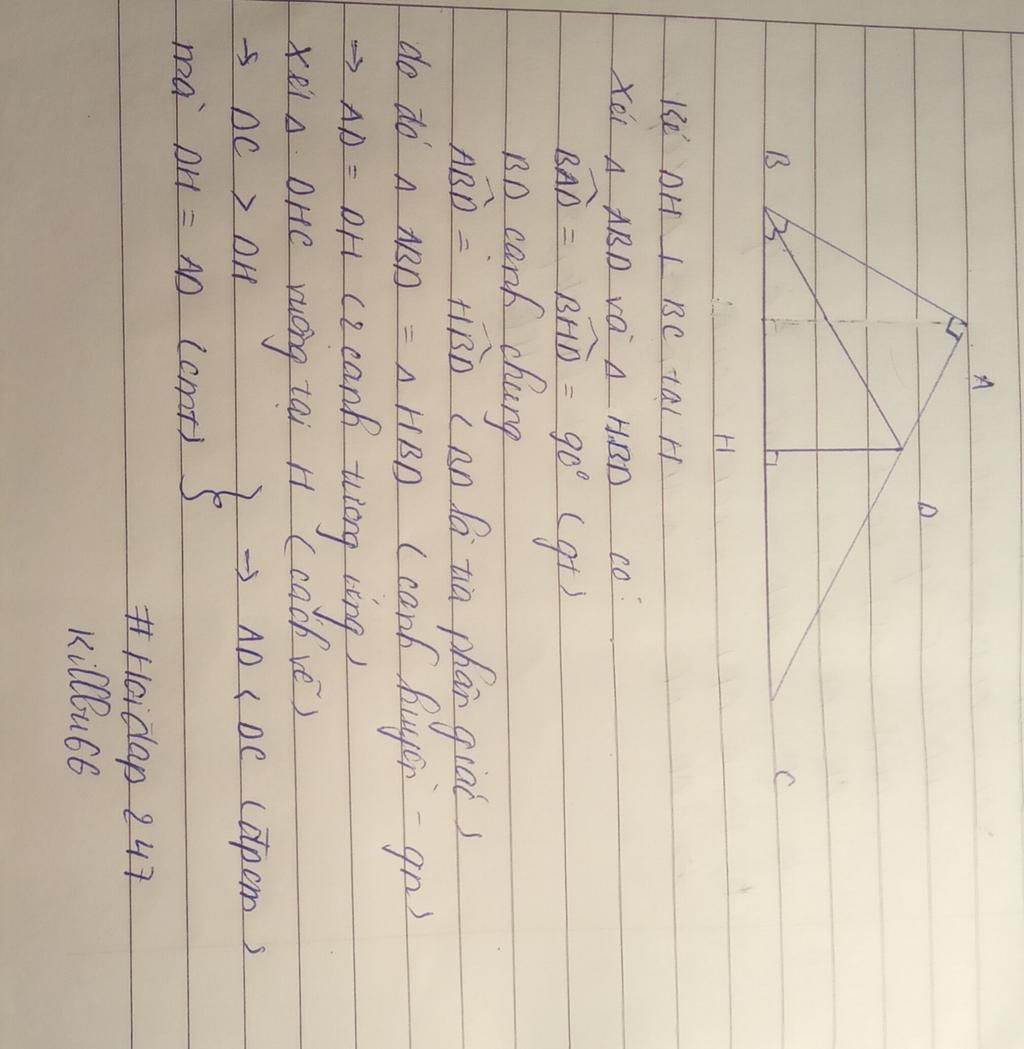 A
D
B
H
C
Kẻ DH ⊥ BC tại H
Xét Δ ABD và Δ HBD có:
BAD = BHD = 90° (gt)
BD cạnh chung
ABD = HBD (BD là tia phân giác)
do đó Δ ABD = Δ HBD (cạnh huyền - gn)
→ AD = DH (2 cạnh tương ứng)
Xét Δ DHC vuông tại H (cách vẽ)
→ DC > DH
mà DH = AD (cmt) } → AD < DC (đpcm)
# Hoidap 247
Killbu66